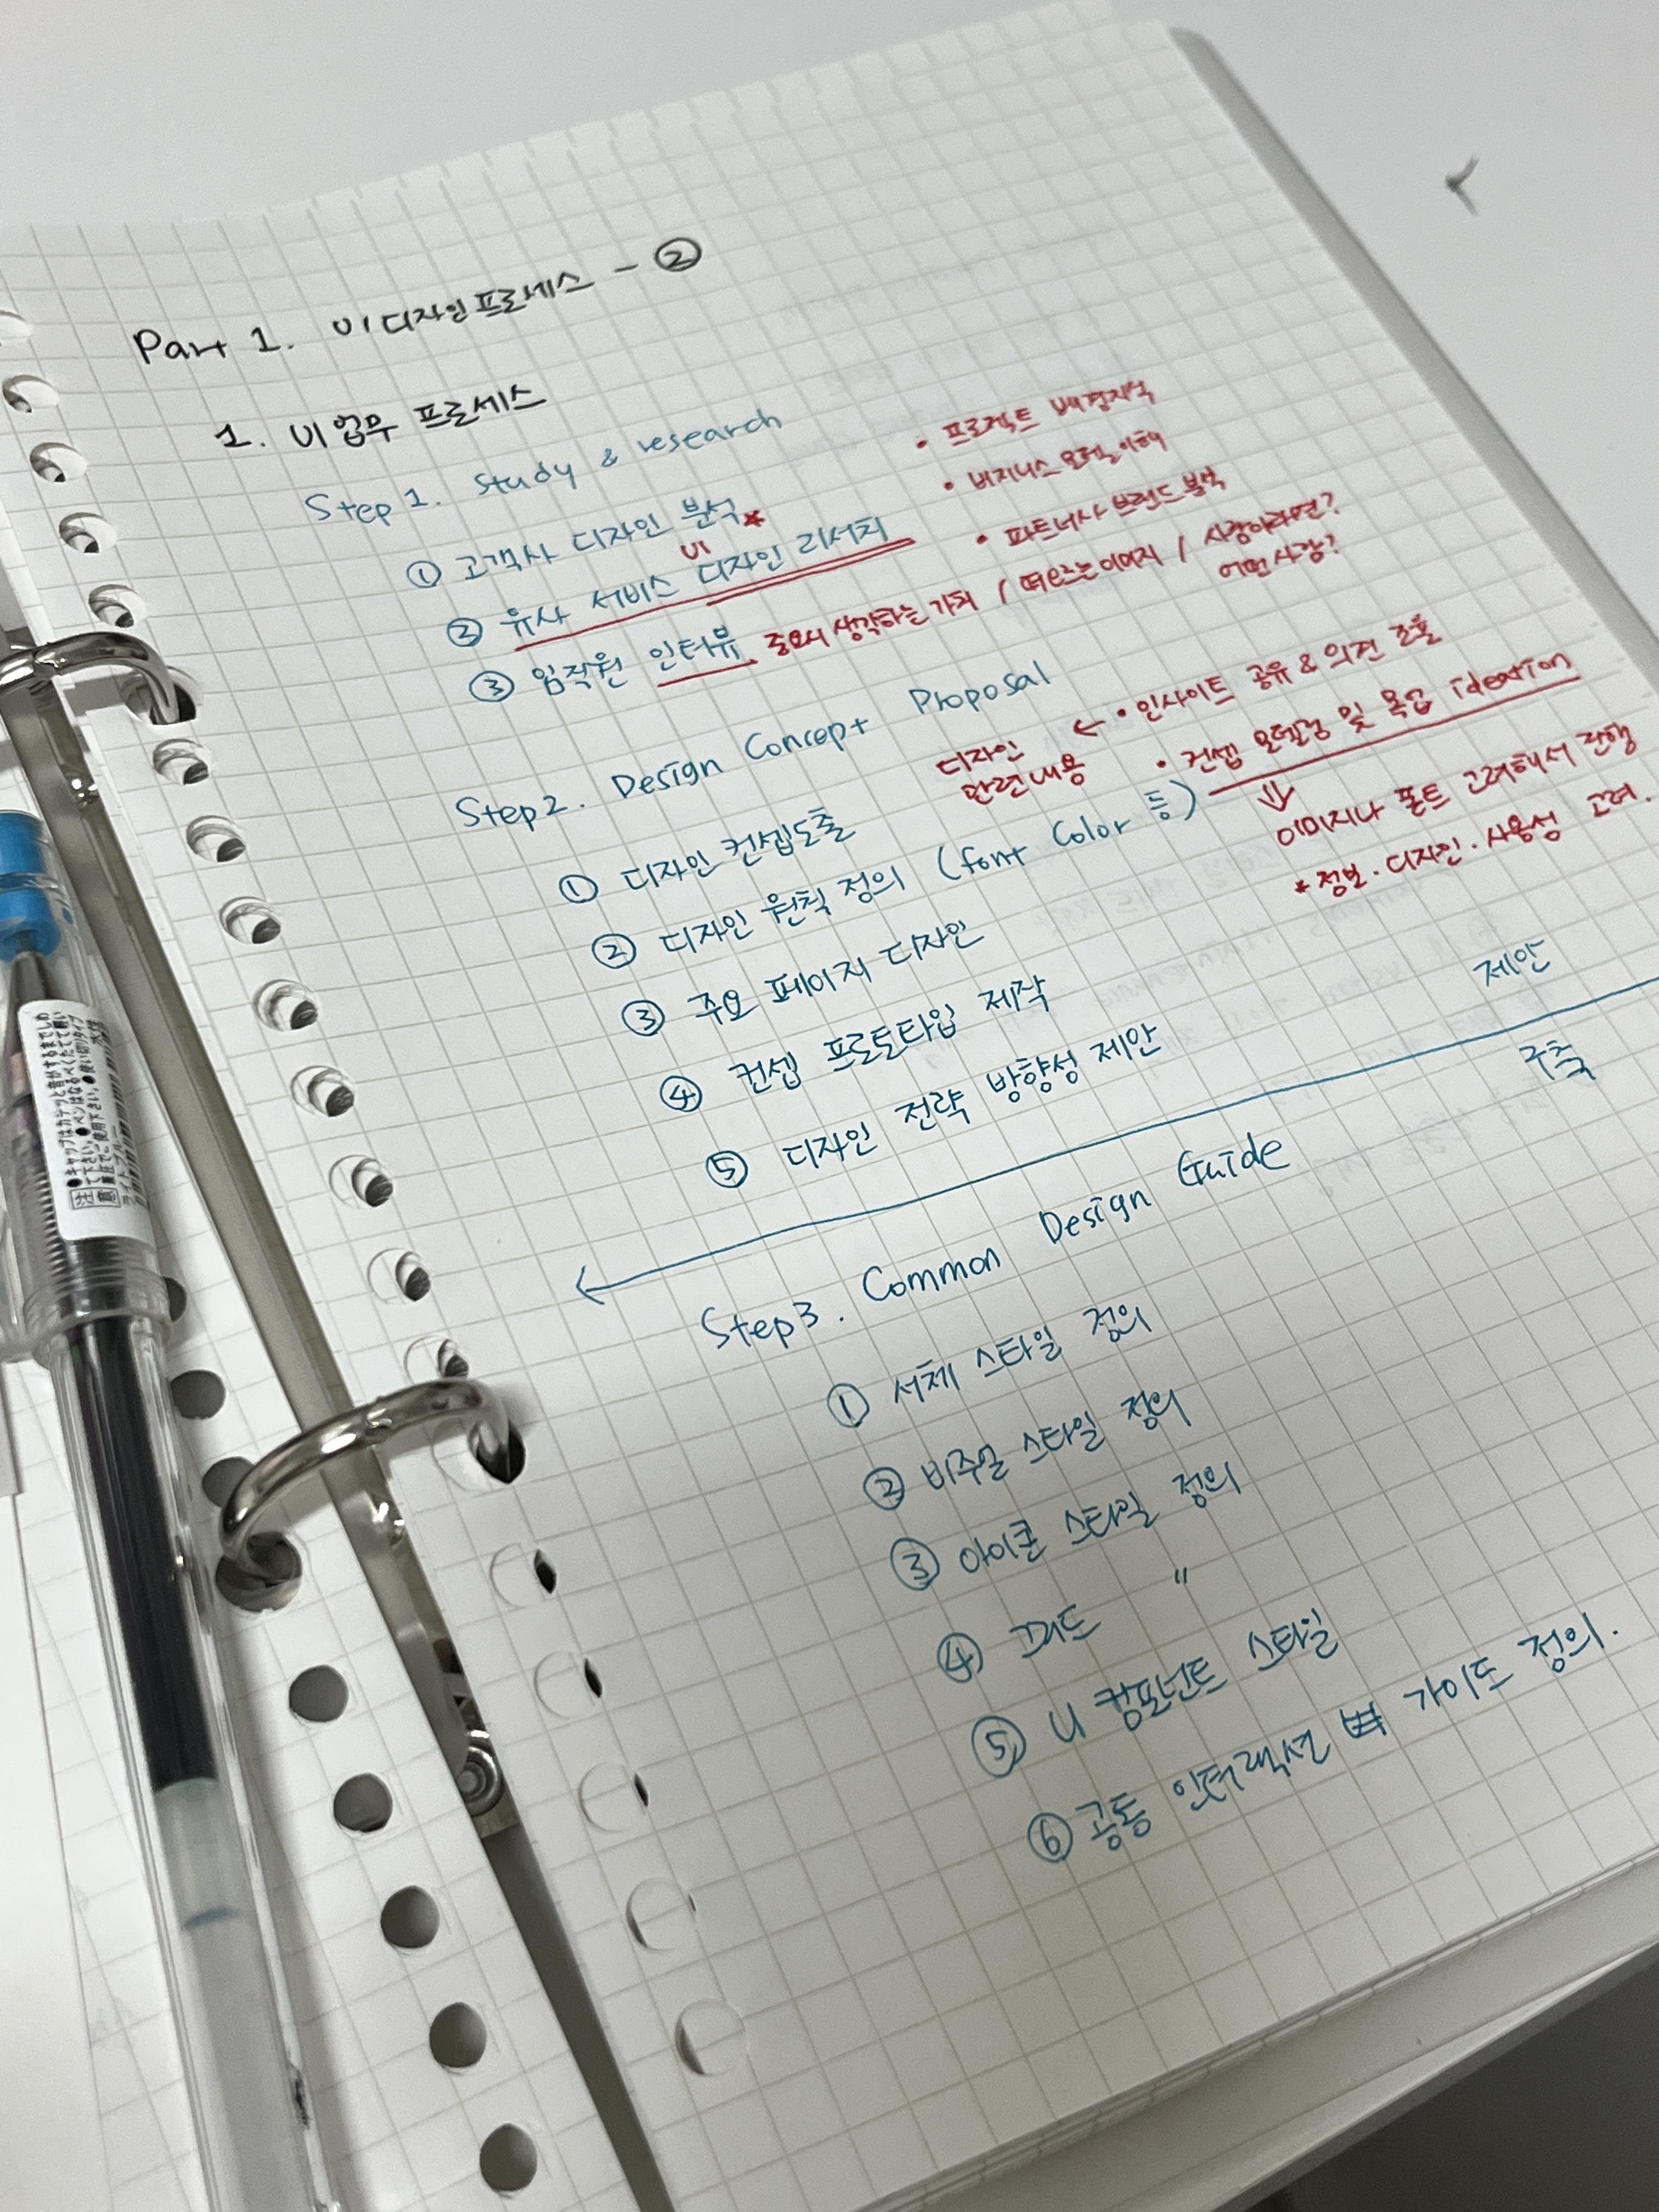 Part 1. UI 디자인 프로세스 - ②
1. UI 업무 프로세스
Step 1. Study & research
① 고객사 디자인 분석*
• 프로젝트 배경지식
• 비지니스 모델 이해
• 파트너사 브랜드 분석
UI
② 유사 서비스 디자인 리서치
③ 임직원 인터뷰 중요시 생각하는 가치 / 떠오르는 이미지 / 사람이라면?
어떤 사람?
Step 2. Design Concept Proposal
디자인 관련 내용 ← • 인사이트 공유 & 의견 조율
• 컨셉 모델링 및 목업 ideation
⇓
이미지나 폰트 고려해서 진행
* 정보 . 디자인 . 사용성 고려 .
① 디자인 컨셉도출
② 디자인 원칙 정의 (font Color 등)
③ 주요 페이지 디자인
④ 컨셉 프로토타입 제작
⑤ 디자인 전략 방향성 제안
제안
구축
Step 3. Common Design Guide
① 서체 스타일 정의
② 비주얼 스타일 정의
③ 아이콘 스타일 정의
④ "
⑤ UI 컴포넌트 스타일
⑥ 공통 인터랙션 가이드 정의.
●キャップはカチッと音がするまでしめて下さい。●ペンはなるべくたてて軽い筆圧でご使用下さい。●使い切りタイプ
ライトブルー 水性